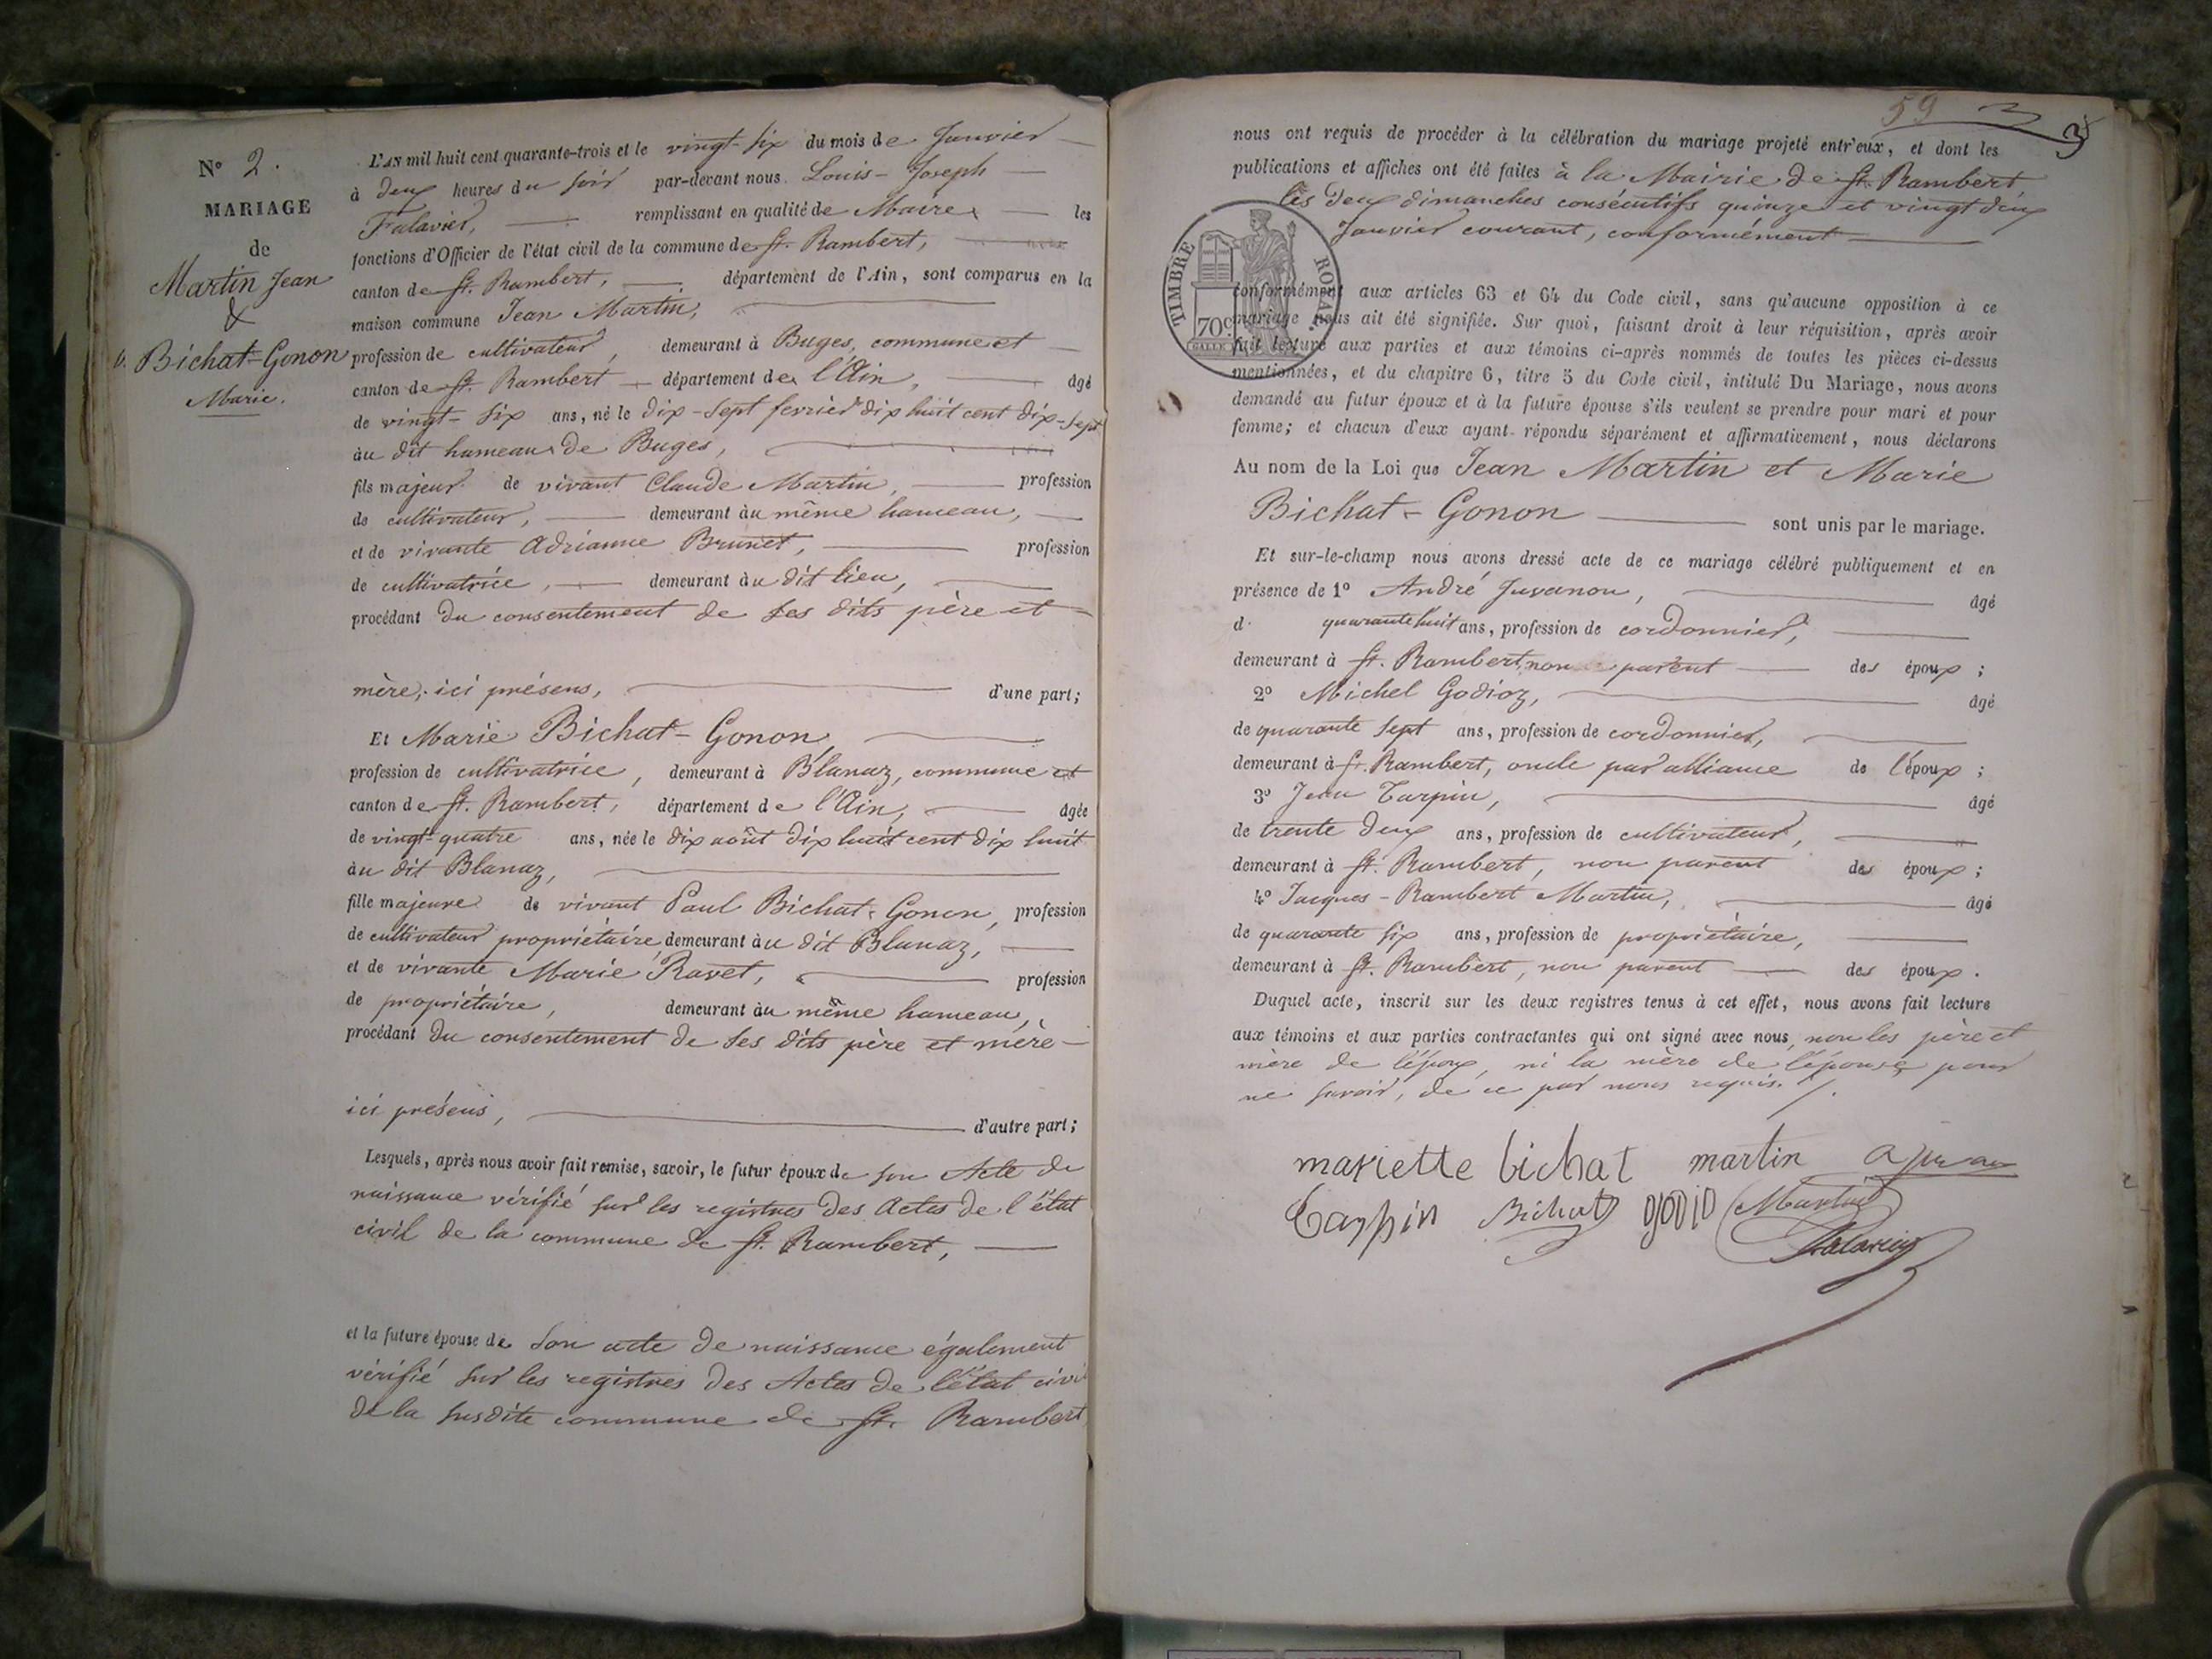 N° 2.
MARIAGE
de
Martin Jean
&
Bichat-Gonon
Marie.
L'AN mil huit cent quarante-trois et le vingt-six du mois de Janvier
à deux heures du soir par-devant nous Louis-Joseph
Falavier, remplissant en qualité de Maire les
fonctions d'Officier de l'état civil de la commune de St. Rambert,
canton de St. Rambert, département de l'Ain, sont comparus en la
maison commune Jean Martin,
profession de cultivateur, demeurant à Buges, commune et
canton de St. Rambert département de l'Ain, âgé
de vingt-six ans, né le dix-sept fevrier dix huit cent dix-sept
au dit hameau de Buges,
fils majeur de vivant Claude Martin, profession
de cultivateur, demeurant au même hameau,
et de vivante Adrianne Brunet, profession
de cultivatrice, demeurant au dit lieu,
procédant du consentement de ses dits père et
mère, ici présens, d'une part;
Et Marie Bichat-Gonon,
profession de cultivatrice, demeurant à Blanaz, commune et
canton de St. Rambert, département de l'Ain, âgée
de vingt-quatre ans, née le dix août dix huit cent dix huit
au dit Blanaz,
fille majeure de vivant Paul Bichat-Gonon, profession
de cultivateur propriétaire, demeurant au dit Blanaz,
et de vivante Marie Ravet, profession
de propriétaire, demeurant au même hameau,
procédant du consentement de ses dits père et mère
ici présens, d'autre part;
Lesquels, après nous avoir fait remise, savoir, le futur époux de son Acte de
naissance vérifié sur les registres des Actes de l'état
civil de la commune de St. Rambert,
et la future épouse de son acte de naissance également
vérifié sur les registres des Actes de l'état civil
de la susdite commune de St. Rambert
59
3
nous ont requis de procéder à la célébration du mariage projeté entr'eux, et dont les
publications et affiches ont été faites à la Mairie de St. Rambert,
les deux dimanches consécutifs quinze et vingt deux
Janvier courant, conformément
TIMBRE ROYAL
70c
conformément aux articles 63 et 64 du Code civil, sans qu'aucune opposition à ce
mariage nous ait été signifiée. Sur quoi, faisant droit à leur réquisition, après avoir
fait lecture aux parties et aux témoins ci-après nommés de toutes les pièces ci-dessus
mentionnées, et du chapitre 6, titre 5 du Code civil, intitulé Du Mariage, nous avons
demandé au futur époux et à la future épouse s'ils veulent se prendre pour mari et pour
femme; et chacun d'eux ayant répondu séparément et affirmativement, nous déclarons
Au nom de la Loi que Jean Martin et Marie
Bichat-Gonon sont unis par le mariage.
Et sur-le-champ nous avons dressé acte de ce mariage célébré publiquement et en
présence de 1° André Juvanon, âgé
d quarante huit ans, profession de cordonnier,
demeurant à St. Rambert, non parent des époux;
2° Michel Godioz, âgé
de quarante sept ans, profession de cordonnier,
demeurant à St. Rambert, oncle par alliance de l'époux;
3° Jean Tarpin, âgé
de trente deux ans, profession de cultivateur,
demeurant à St. Rambert, non parent des époux;
4° Jacques-Rambert Martin, âgé
de quarante six ans, profession de propriétaire,
demeurant à St. Rambert, non parent des époux.
Duquel acte, inscrit sur les deux registres tenus à cet effet, nous avons fait lecture
aux témoins et aux parties contractantes qui ont signé avec nous, non les père et
mère de l'époux, ni la mère de l'épouse, pour
ne savoir, de ce par nous requis.
mariette bichat martin
Tarpin Bichat Martin
Falavier